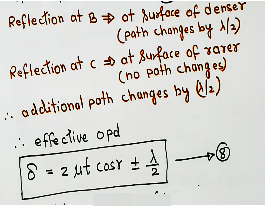 Reflection at B ⇒ at surface of denser
(path changes by λ/2)
Reflection at C ⇒ at surface of rarer
(no path changes)
∴ additional path changes by (λ/2)
∴ effective opd
δ = 2 μt cosr ± λ/2 → ⑧